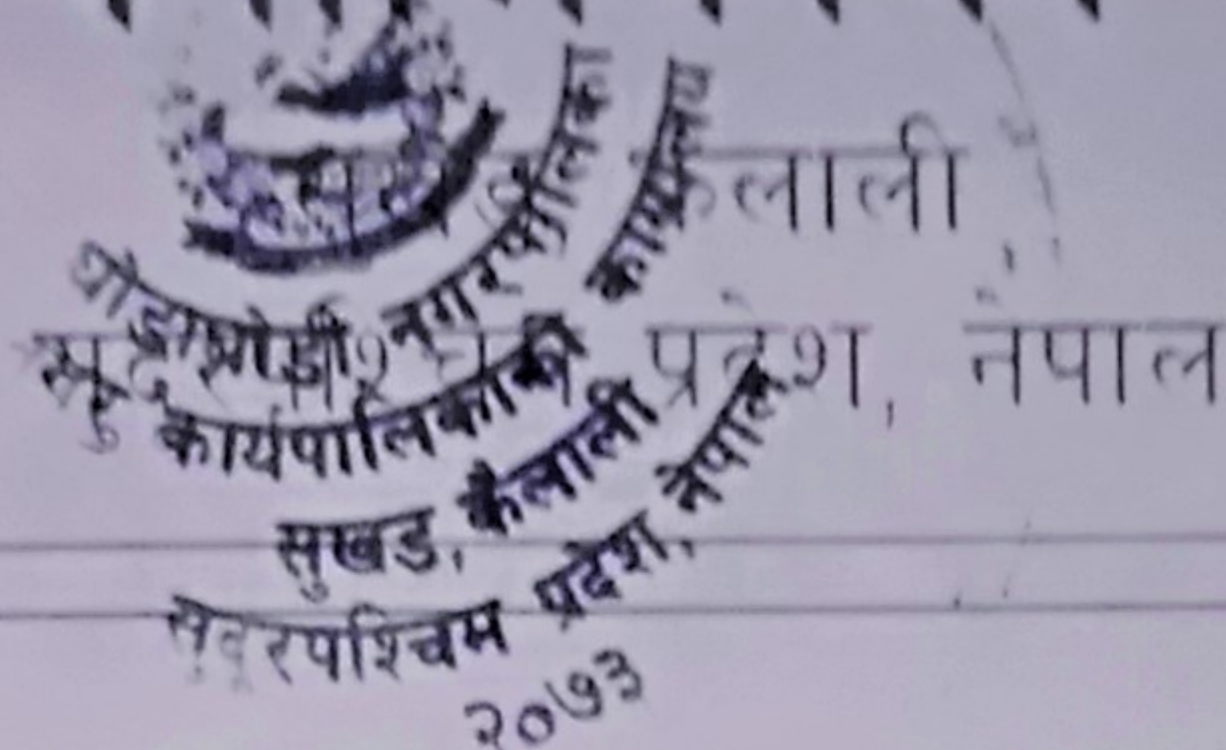 कैलाली
प्रदेश, नेपाल
घोडाघोडी नगरपालिका
कार्यपालिकाको कार्यालय
सुखड, कैलाली
सुदूरपश्चिम प्रदेश, नेपाल
२०७३